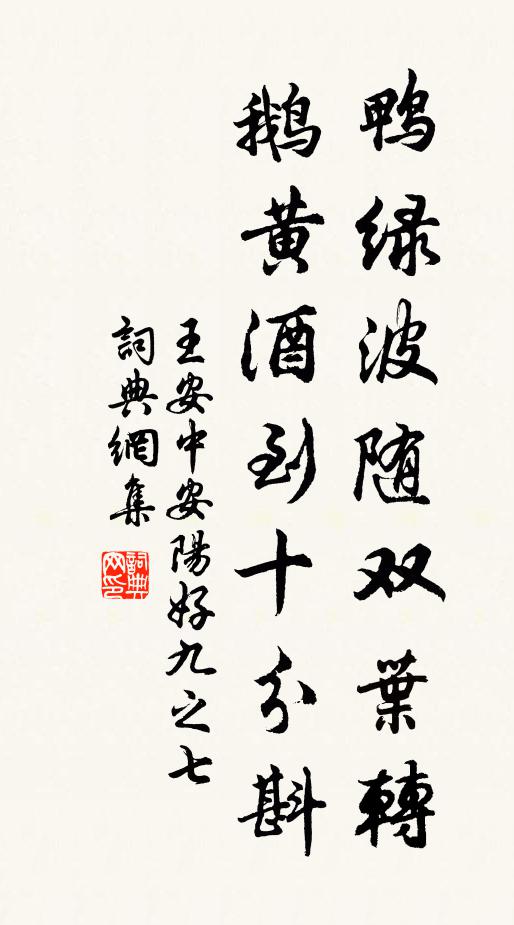 鸭绿波随双葉轉
鹅黄酒到十分斟
王安中安陽好九之七
詞典網集
詞典網印